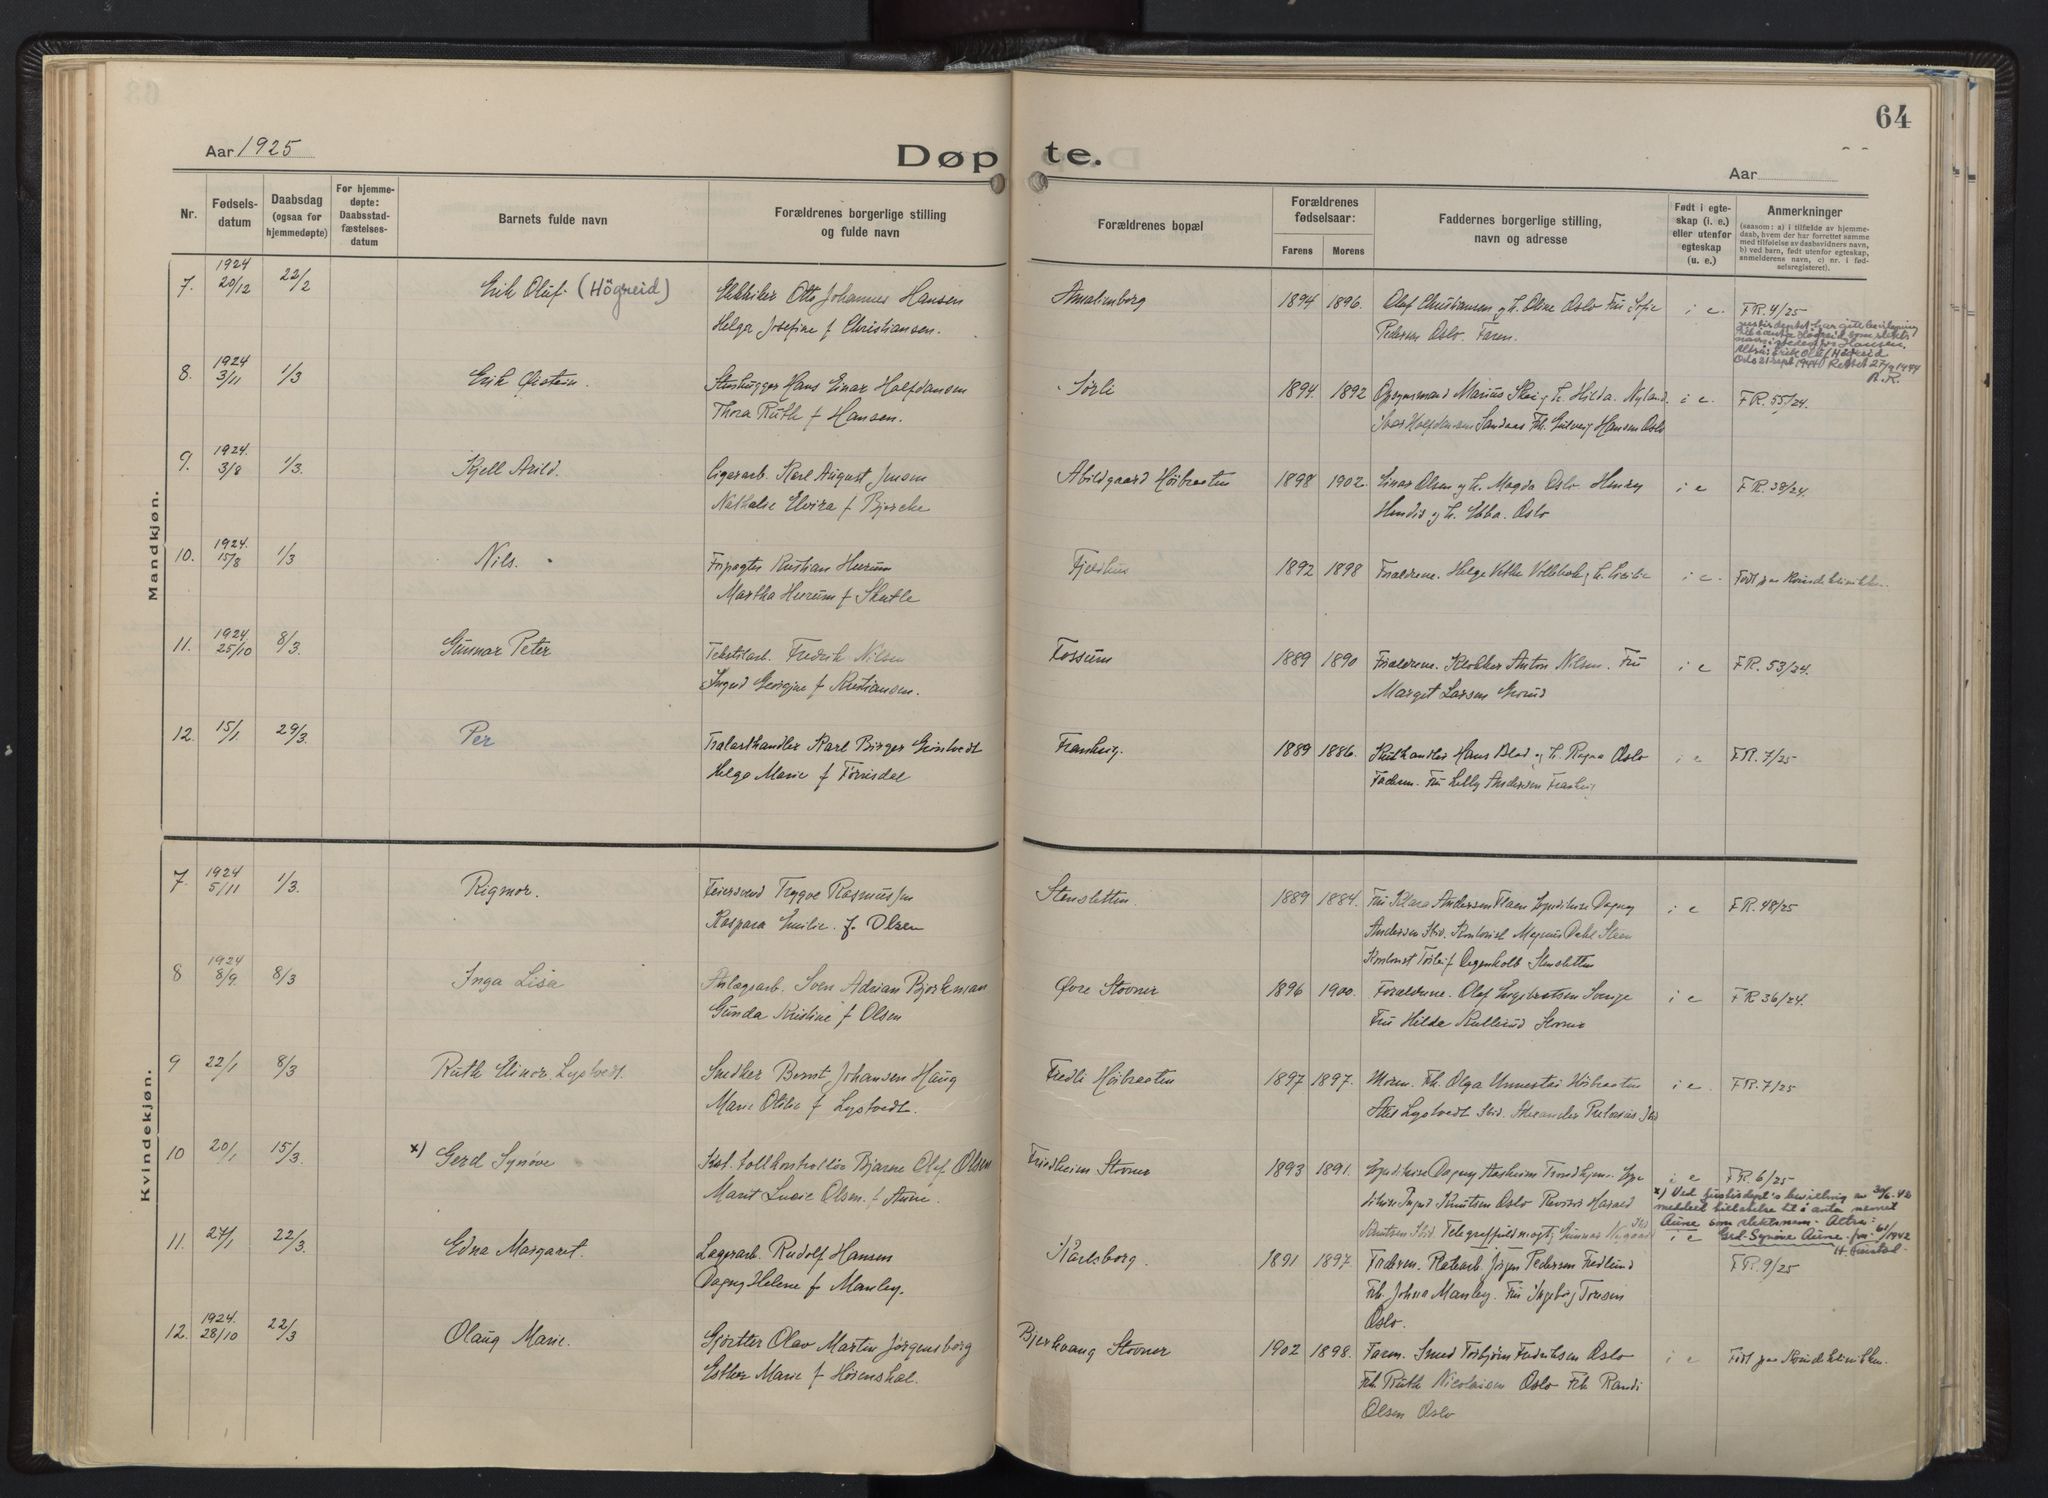 64
Aar 1925
Døpte.
Aar
Nr.
Fødsels-
datum
Daabsdag
(ogsaa for
hjemmedøpte)
For hjemme-
døpte:
Daabsstad-
fæstelses-
datum
Barnets fulde navn
Forældrenes borgerlige stilling
og fulde navn
Forældrenes bopæl
Forældrenes
fødselsaar:
Farens
Morens
Faddernes borgerlige stilling,
navn og adresse
Født i egte-
skap (i. e.)
eller utenfor
egteskap
(u. e.)
Anmerkninger
(saasom: a) i tilfælde av hjemme-
daab, hvem der har forrettet samme
med tilføielse av daabsvidners navn,
b) ved barn, født utenfor egteskap,
anmelderens navn, c) nr. i fød-
selsregisteret).
Mandkjøn.
7. 1924 20/12 22/2 Erik Oluf (Högreid) Otto Johannes Hansen Amalienborg 1894 1896. Olaf Christiansen og h. Oline Oslo Fru Sofie i e. F.R. 4/25
Helga Josefine f Christiansen. Pedersen Oslo. Faren.
8. 1924 3/11 1/3 Erik Øistein. Stenhugger Hans Einar Halfdansen Sørli 1894. 1892 Opsynsmand Marius Skei og h. Hilda. Nyland. i e. F.R. 55/24.
Thora Ruth f Hansen. Halfdansen Sandaas Frk. Solveig Hansen Oslo
9. 1924. 3/8 1/3. Kjell Arild. Cigararb. Karl August Jensen Abildgaard Høibraaten 1898 1902. Einar Olsen og h. Magda Oslo. Henry i e F.R. 38/24.
Nathalie Elvira f Bjercke og h. Ebba. Oslo
10. 1924. 15/8 1/3 Nils. Forpagter Kristian Hurum Fjeldhus 1892 1898 Forældrene. Helge og h. Cecilie i e. Født paa Kvindeklinikken.
Martha Hurum f Skutle
11. 1924. 25/10 8/3. Gunnar Peter Tekstilarb. Fredrik Nilsen Fossum 1889 1890 Forældrene. Klokker Anton Nilsen. Fru i e F.R. 53/24.
Ingrid Georgine f Kristiansen. Margit Larsen Grorud
12. 15/1. 29/3. Per Trælasthandler Karl Birger 1889 1886. Hans og h. Ragna Oslo i e F.R. 7/25
Helga Marie f Førrisdal Fru Lelly Andersen
Kvindekjøn.
7. 1924 5/11 1/3. Rigmor. Feiersvend Trygve Rasmussen Stensletten. 1889 1884. Fru Klara Andersen Dagny i e F.R. 48/25
Kaspara Emilie. f. Olsen Andersen Ibid. Kontorist Magnus Dahl
Kontorist Stensletten
8 1924 8/9. 8/3 Inga Lisa Anlægsarb. Sven Adrian Bjorkman Øvre Stovner 1896 1900. Forældrene. Olaf Engebretsen Sverige i e F.R. 36/24.
Gunda Kristine f Olsen Fru Hilda Kullerud Stovner
9 22/1 8/3 Ruth Elinor Lystvedt. Snedker Bernt Johansen Haug Fredli Høibraaten 1897 1897. Moren. Frk. Olga Høibraaten i e F.R. 7/25
Marie Otilie f Lystvedt. Lystvedt Ibid. Alexander
10 20/1 15/3. x) Gerd Synøve Kst. tollkontrollør Bjarne Olaf Olsen Fredheim Stovner 1893 1891. Dagny Aasheim Trondhjem. i e F.R. 6/25
Marit Lucie Olsen. f. Aune. Ingrid Knutsen Oslo Revisor Harald x) Ved justisdept's bevilling av 30/6-42
meddelt tillatelse til å anta navnet
Knutsen Ibid. Telegraffuldmegtig Gunnar Aune som slektsnavn. Altså:
Gerd Synöve Aune.
11. 27/1 22/3. Edna Margaret. Lagerarb. Rudolf Hansen Karlsborg. 1891 1897. Jörgen Pedersen Fredlund i e F.R. 9/25
Dagny Helene f Manley. Frk. Johna Manley. Fru Ingeborg
Oslo.
12. 1924. 28/10 22/3 Olaug Marie. Gjørtler Olav Martin Jørgensborg Bjerkvang Stovner 1902 1898. Faren. Smed Torbjørn Fredriksen Oslo i e Født paa Kvindeklinikken.
Esther Marie f Frk. Ruth Nicolaisen Oslo Frk Randi
Olsen Oslo